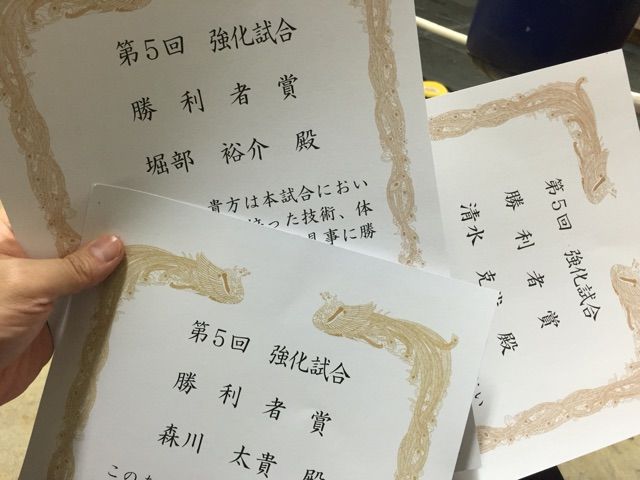 第5回 強化試合
勝利者賞
堀部 裕介 殿
貴方は本試合におい
った技術、体
見事に勝
第5回 強化試合
勝利者賞
清水 克 殿
い
第5回 強化試合
勝利者賞
森川 太貴 殿
この